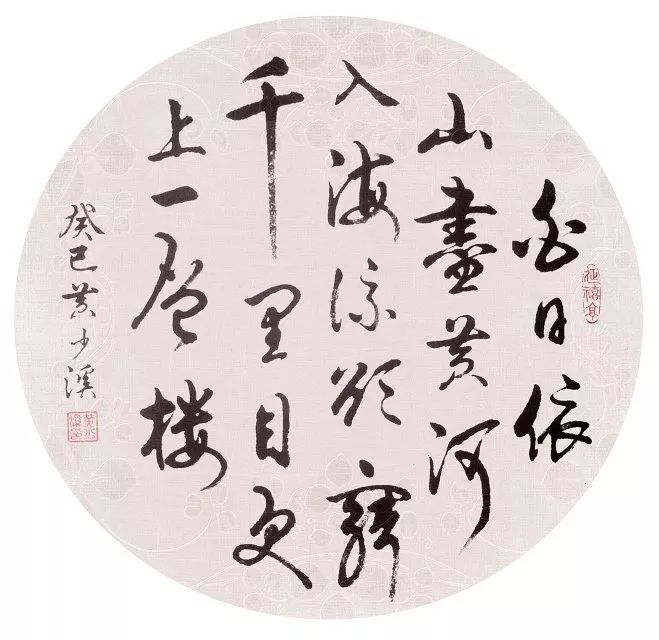 白日依
山盡黄河
入海流欲窮
千里目更
上一層楼
癸巳黄少溪